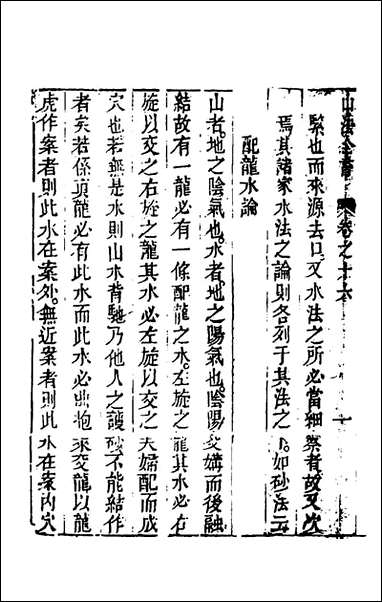 山法全書 卷之十六 一
緊也而來源去口又水法之所必當細察者故又次
焉其諸家水法之論則各列于其法之下如砂法云
配龍水論
山者地之陰氣也水者地之陽氣也陰陽交媾而後融
結故有一龍必有一條配龍之水左旋之龍其水必右
旋以交之右旋之龍其水必左旋以交之夫婦配而成
穴也若無是水則山水背馳乃他人之護砂不能結作
者矣若係真龍必有此水而此水必出抱來交龍以龍
虎作案者則此水在案外無近案者則此水在案內穴